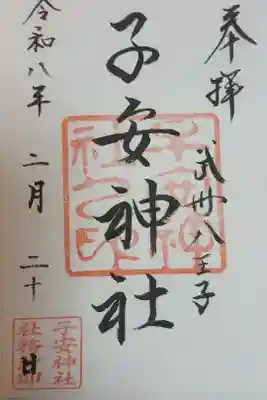 奉拝
武州八王子
子安神社
令和八年 二月 二十日
子安神社
社務所印